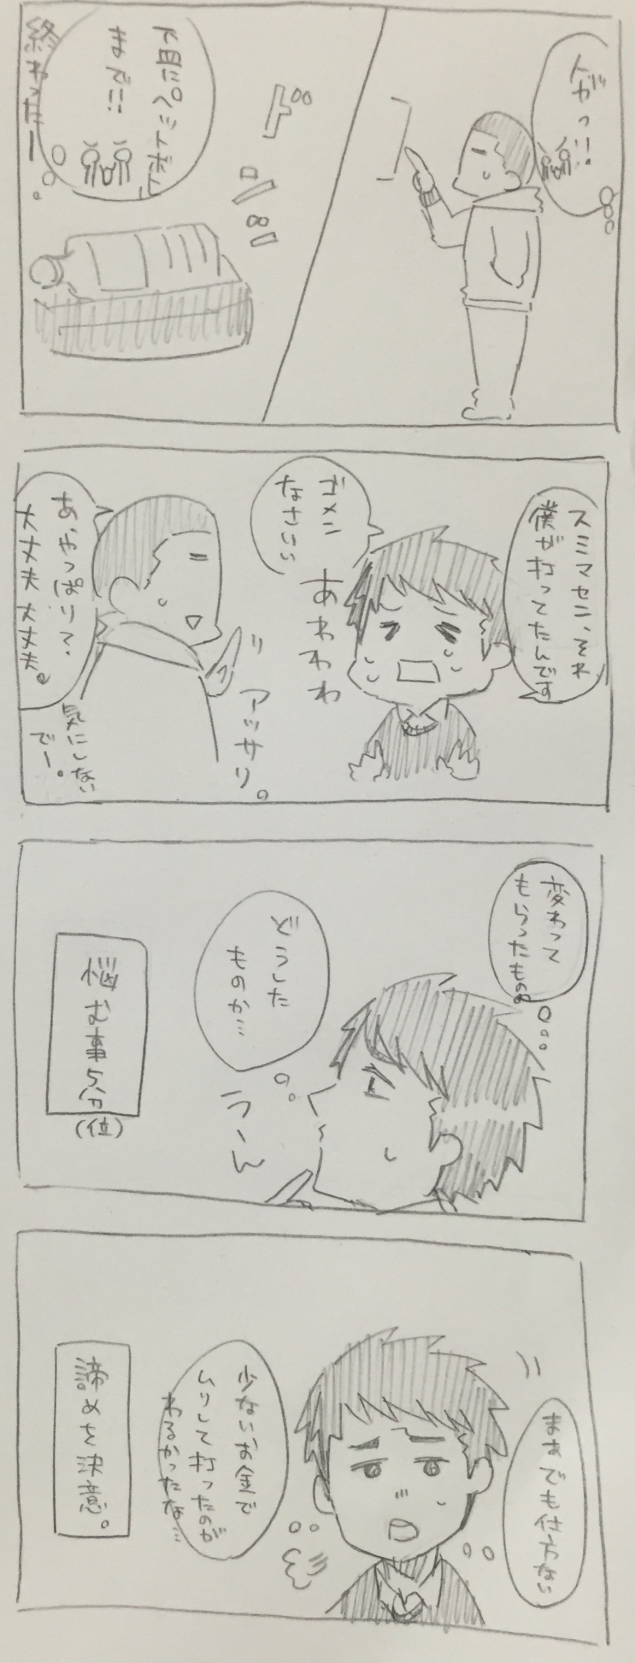 人がっ!!
ドoo
下皿にペットボトル
まで!!
終わったー。
スミマセン、それ
僕が打ってたんです
ゴメン
なさいい
あわわわ
アッサリ。
あ、やっぱりて、
大丈夫大丈夫。
気にしない
でー。
変わって
もらったものの
どうした
ものか…
うーん
悩む事5分
(位)
まぁでも仕方ない
少ないお金で
ムリして打ったのが
わるかったな…
諦めを決意。